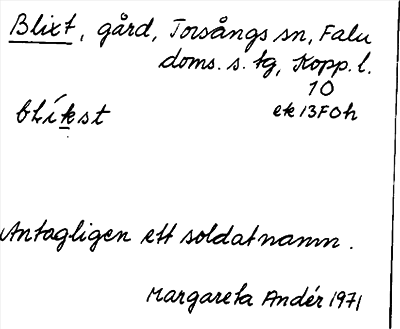 Blixt, gård, Torsångs sn, Falu
doms. s. tg, Kopp. l.
10
blíkst ek 13F0h
Antagligen ett soldatnamn.
Margareta Andér 1971